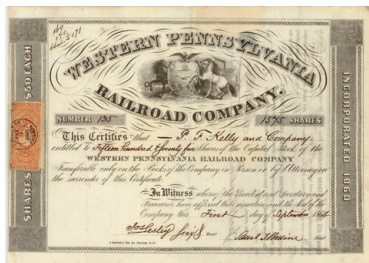 WESTERN PENNSYLVANIA
RAILROAD COMPANY.
SHARES $50 EACH
INCORPORATED 1860
NUMBER 135
1575 SHARES
This Certifies that P. F. Kelly and Company
entitled to Fifteen hundred & Seventy five Shares of the Capital Stock of the
WESTERN PENNSYLVANIA RAILROAD COMPANY
Transferable only on the Books of the Company in Person or by Attorney on
the surrender of this Certificate
In Witness whereof the President and Secretary and
Treasurer have affixed their names and the Seal of the
Company this First day of September 1864